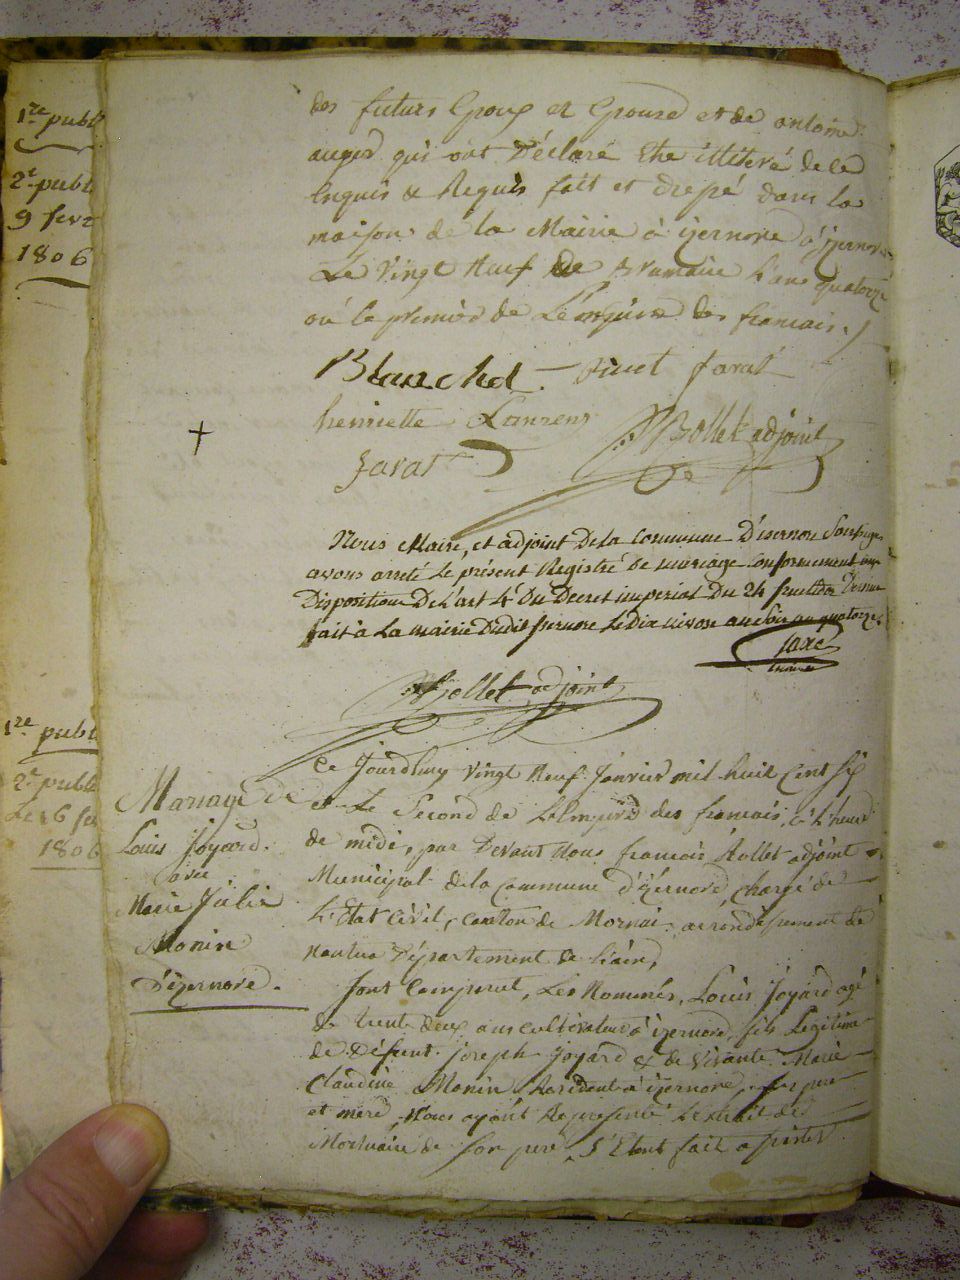 1re publ
2e publ
9 fevr
1806
des futurs Epoux et Epouse et de antoine
auger qui ont Déclaré Etre illiteré de ce
Enquis & Requis fait et dressé dans la
maison de la Mairie à izernore à izernore
Le Vingt Neuf de Brumaire L'an quatorze
ou le premier de L'empire des francais./
Blanchet - Favat
henriette Laurens
Rollet adjoint
Favat
Nous Maire, et adjoint De La Commune D'isernore Soussignes
avons arreté Le présent Registre de mariage Conformement aux
Disposition De L'art 4e Du Decret imperial Du 24 fructidor Dernier
fait à La mairie Dudit isernore Le Dix nivose au soir an quatorze
Rollet adjoint
1re publ
2e publ
Le 16 fev
1806
Mariage de
Louis Joyard.
avec
Marie Julie
Monin
D'izernore.
Ce Jourdhuy vingt Neuf Janvier mil huit Cent Six
et Le Second de L'Empire des francais, à L'heure
de midi, par Devant Nous francois Rollet adjoint
Municipal de la Commune d'izernore, chargé de
L'Etat Civil, canton de Mornai arrondissement de
Nantua Département de L'ain,
Sont Comparut, Les Nommés, Louis Joyard agé
de trente deux ans cultivateur à izernore, fils Legitime
de Défunt joseph Joyard & de Vivante Marie
Claudine Monin, Resident à izernore, ses pere
et mere, Nous ayant Representé L'extrait de
Mortuaire de son pere, S'Etant fait assister